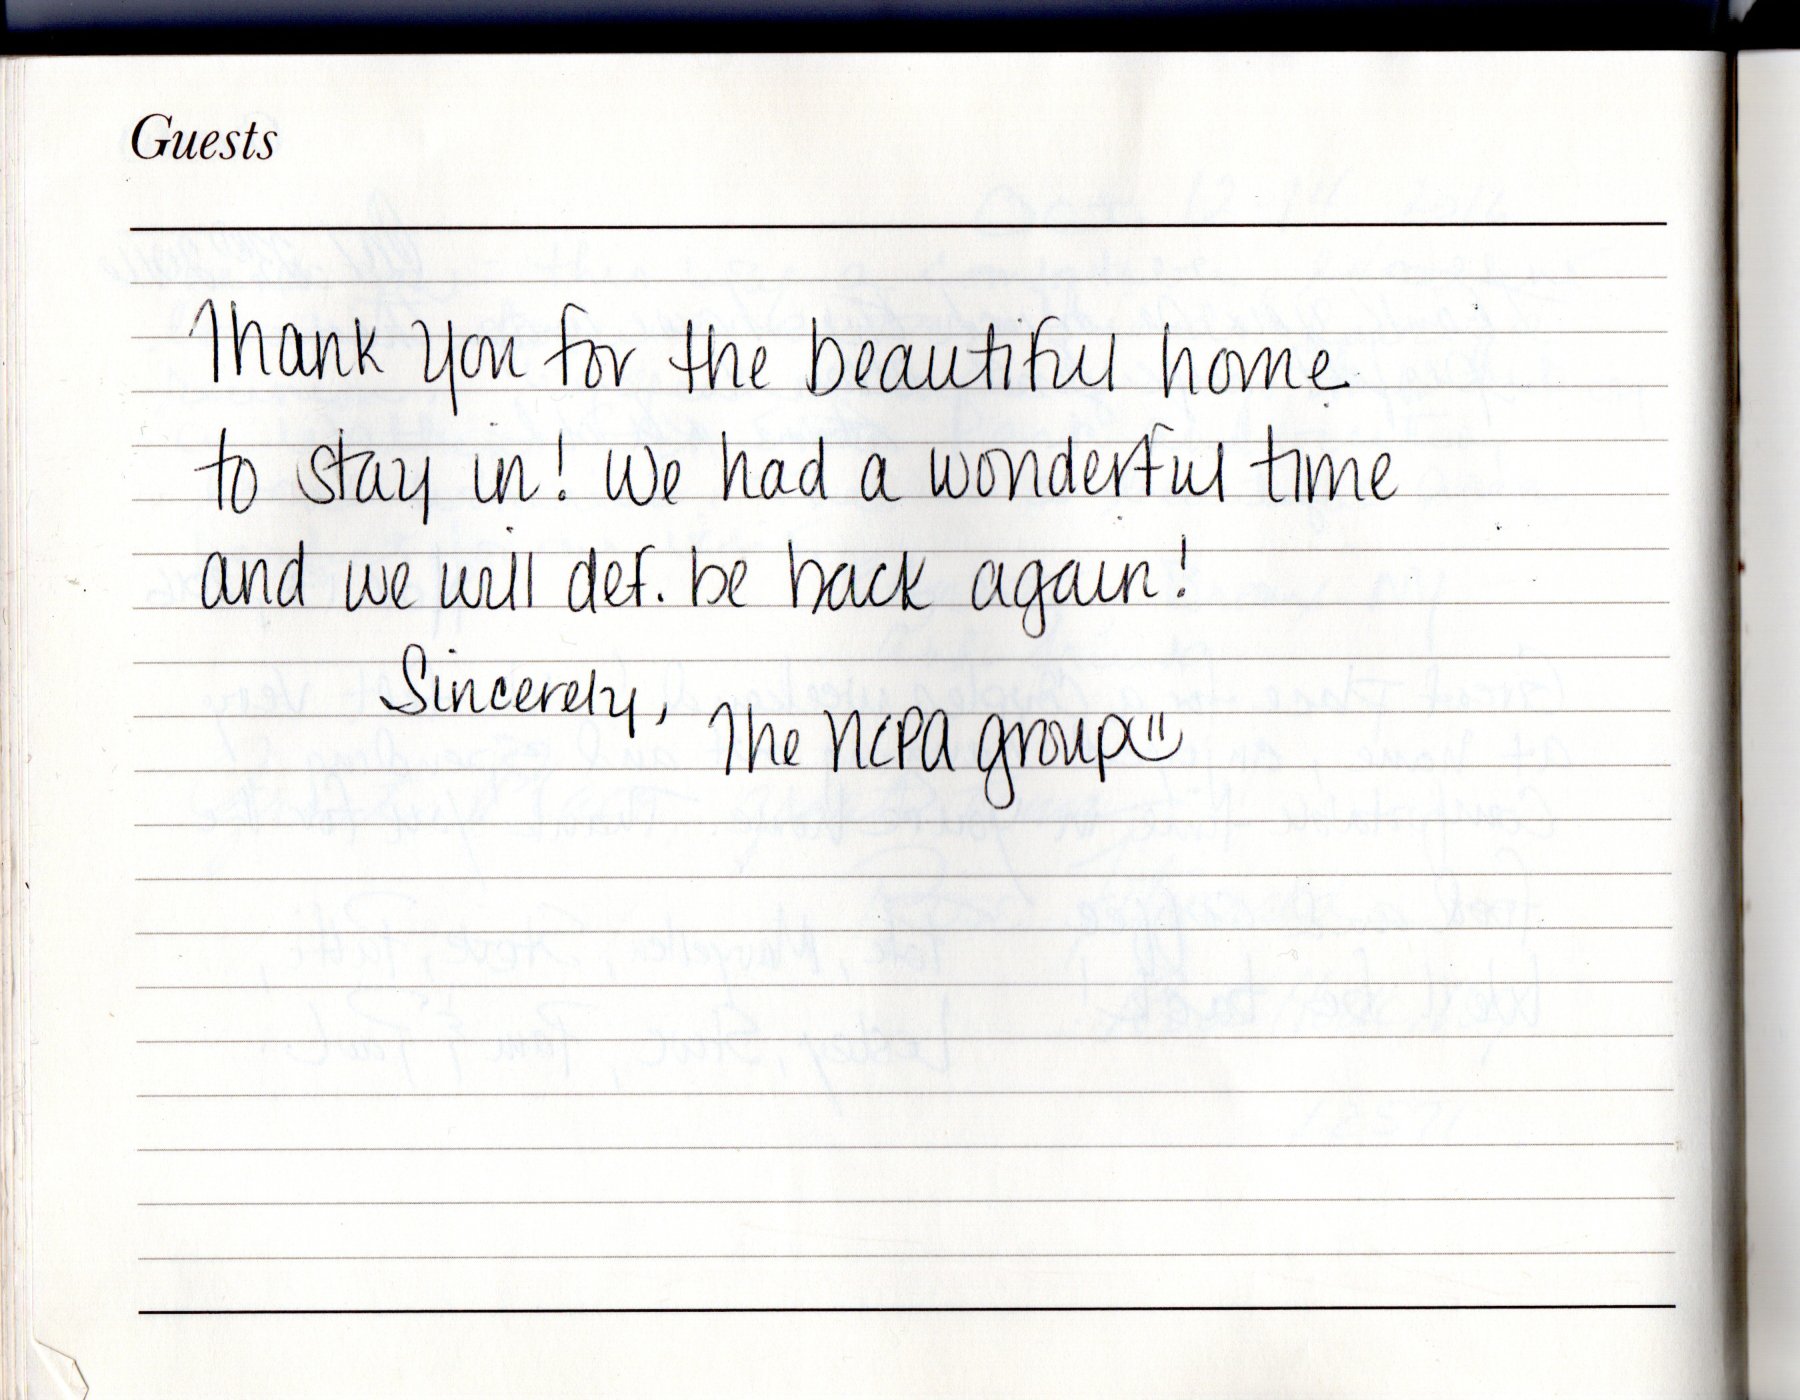 Guests
Thank you for the beautiful home
to stay in! We had a wonderful time
and we will def. be back again!
Sincerely,
The NCPA group